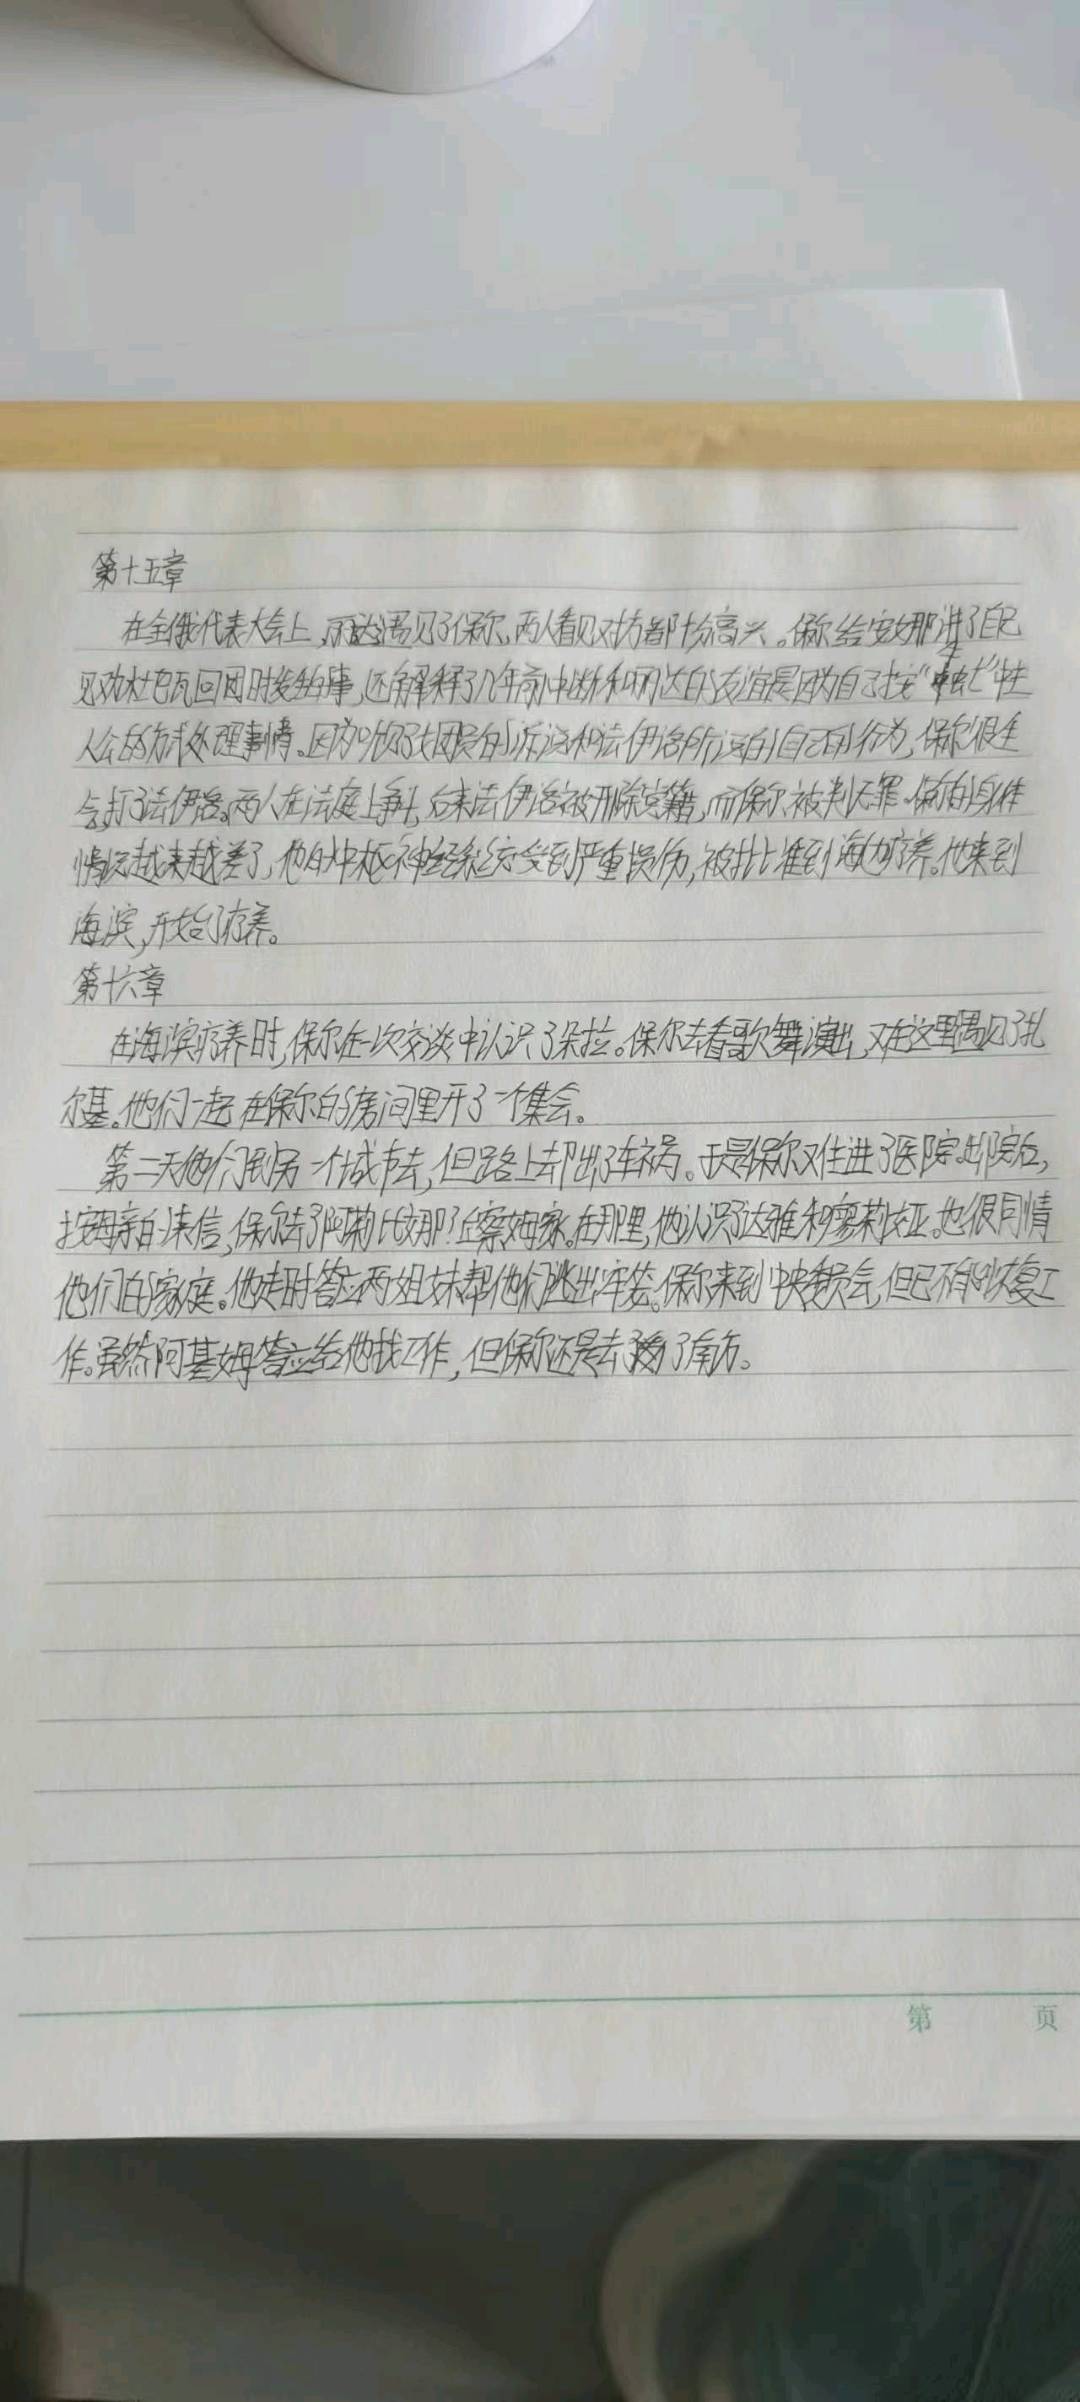 第十五章
在全俄代表大会上,丽达遇见了保尔,两人看见对方都十分高兴。保尔给安娜讲了自己
见劝杜巴瓦回团时发生的事,还解释了几年前中断和丽达的友谊是因为自己按“牛虻”中主
人公的方式处理事情。因为听了女团员的诉说和法伊洛所说的自己的行为,保尔很生
气,打了法伊洛。两人在法庭上争斗,后来法伊洛被开除党籍,而保尔被判无罪。保尔的身体
情况越来越差了,他的中枢神经系统受到严重损伤,被批准到海边疗养。他来到
海滨,开始了疗养。
第十六章
在海滨疗养时,保尔在一次交谈中认识了朵拉。保尔去看歌舞演出,又在这里遇见了扎
尔基。他们一起在保尔的房间里开了一个集会。
第二天他们到另一个城市去,但路上却出了车祸。于是保尔又住进了医院。出院后,
按母亲的来信,保尔去了阿勒比娜·丘察姆家。在那里,他认识了达雅和廖莉亚。他很同情
他们的家庭。他走时答应两姐妹帮他们逃出牢笼。保尔来到中央委员会,但已不能恢复工
作。虽然阿基姆答应给他找工作,但保尔还是去了南方。
第 页